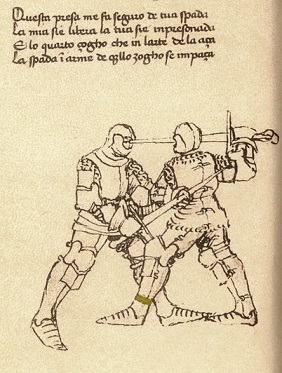 Questa presa me fa seguro de tua spada
La mia sie libera la tua sie inpresonada
E lo quarto çogho che in larte de la aça
La spada ĩ arme de q̃llo zogho se impaça